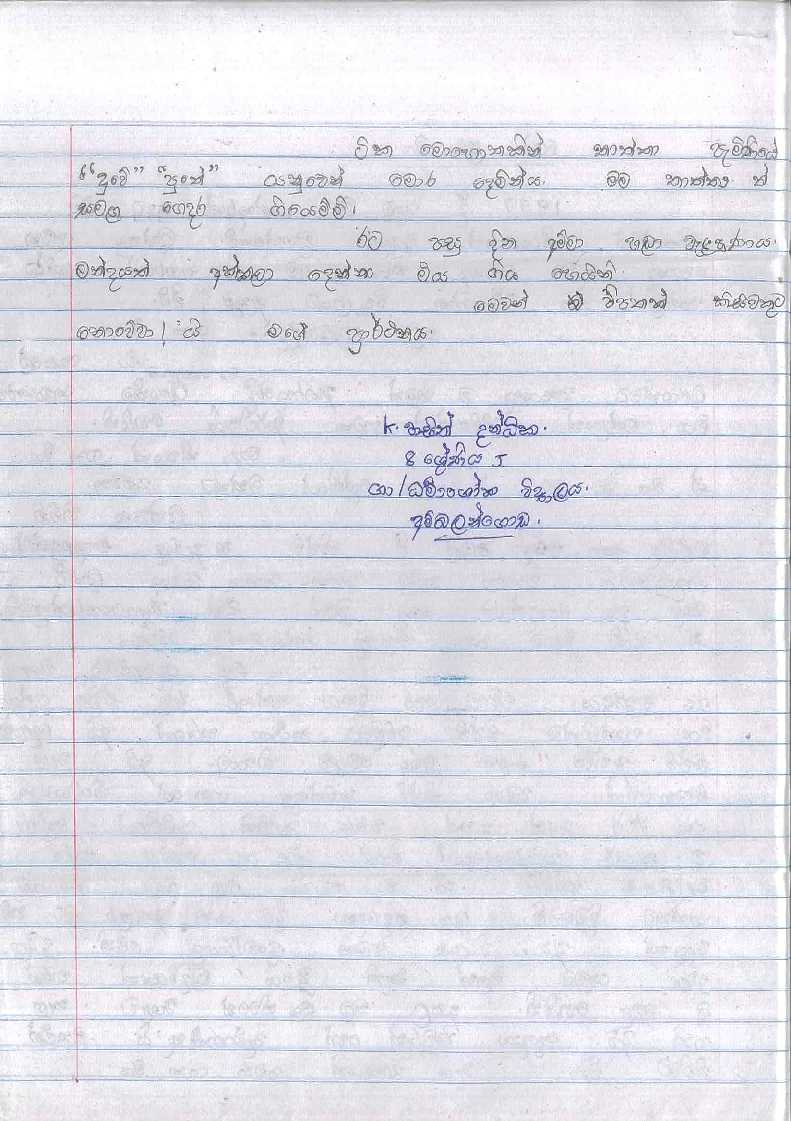 ටික මොහොතකින් තාත්තා පැමිණියේ
"දුවේ" "පුතේ" යනුවෙන් මොර දෙමින්ය. මම තාත්තා ත්
සමග ගෙදර ගියෙමි.
ඊට පසු දින අම්මා හඬා වැළපුණාය.
මන්දයත් අත්තලා දෙන්නා මිය ගිය හෙයිනි.
මෙවන් විපතක් කිසිවකුට
නොවේවා! යි මගේ ප්‍රාර්ථනය.
K. හසින් දන්ධික.
8 ශ්‍රේණිය J
ගා/ධර්මාශෝක විද්‍යාලය.
අම්බලන්ගොඩ.